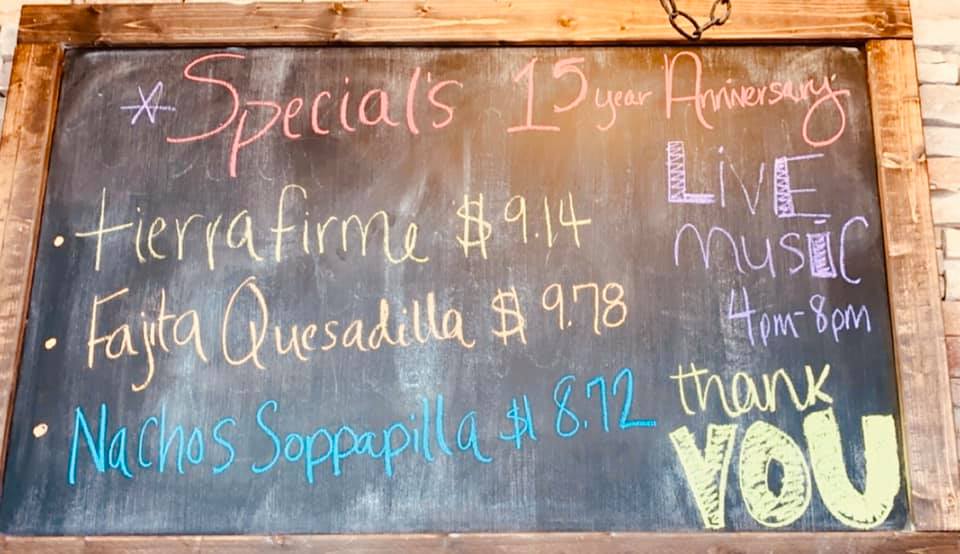 * Special's 15 year Anniversary
• tierra firme $9.14
• Fajita Quesadilla $9.78
• Nachos Soppapilla $8.72
LiVE
music
4pm-8pm
thank
YOU